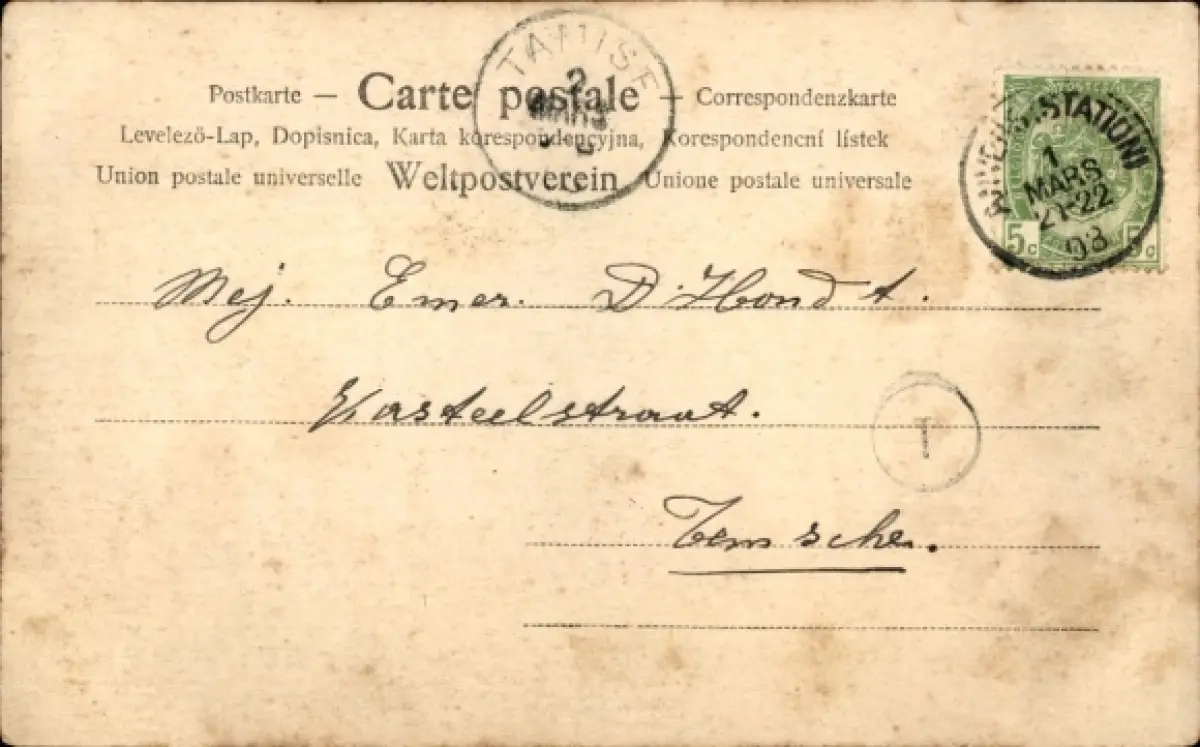 TAMISE
2
MARS
Postkarte — Carte postale — Correspondenzkarte
Levelező-Lap, Dopisnica, Karta korespondencyjna, Korespondencní lístek
Union postale universelle Weltpostverein Unione postale universale
(STATION)
1
MARS
21-22
03
5c 5c
Mej. Emer. D'Hondt.
Kasteelstraat.
T
Temsche.